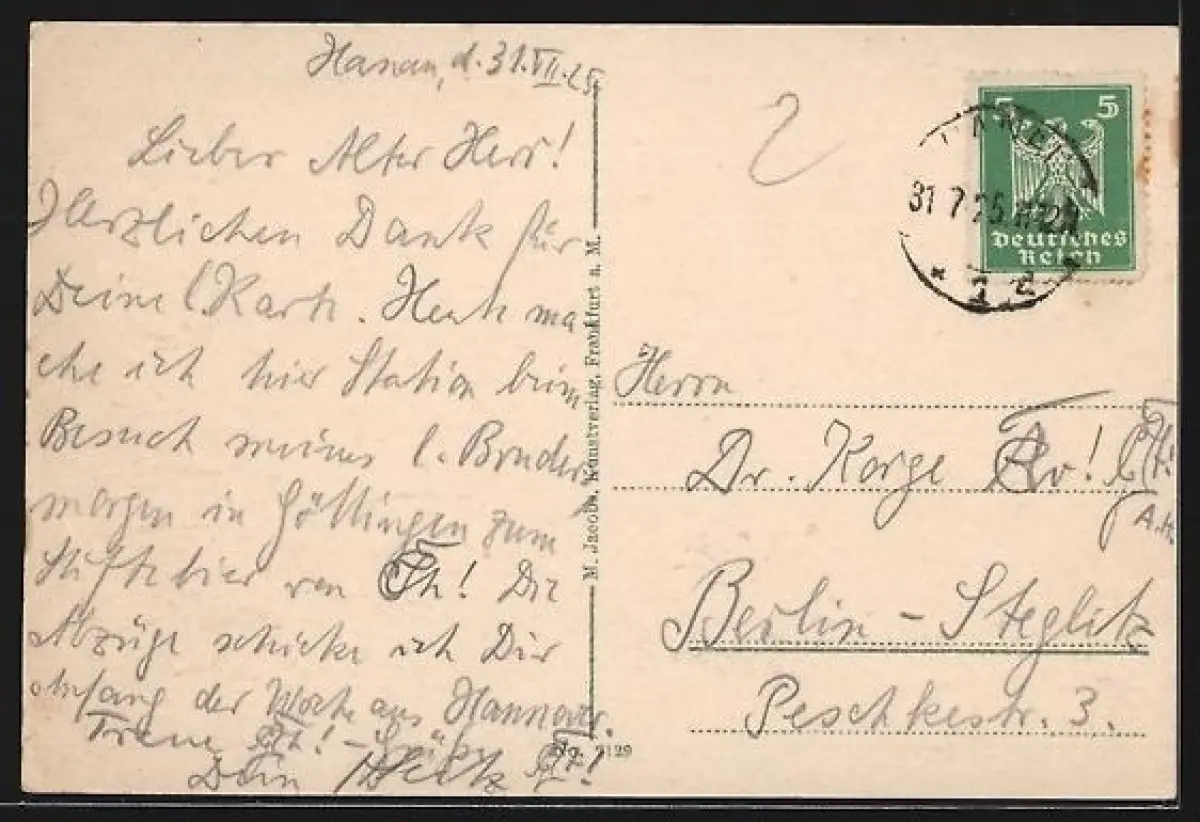 Hanau, d. 31.VII.25.
Lieber Alter Herr!
Herzlichen Dank für
Deine l. Karte. Heute ma
che ich hier Station beim
Besuch meines l. Bruders
morgen in Göttingen zum
Stiftsbier von Th! Die
Abzüge schicke ich Dir
Anfang der Woche aus Hannover.
Treue Th! - Grüße
Dein
M. Jacobs, Kunstverlag, Frankfurt a. M.
No. 7129
2
5 5
Deutsches
Reich
HANAU
31.7.25
* 1
Herrn
Dr. Korge
A.H.
Berlin - Steglitz
Peschkestr. 3.